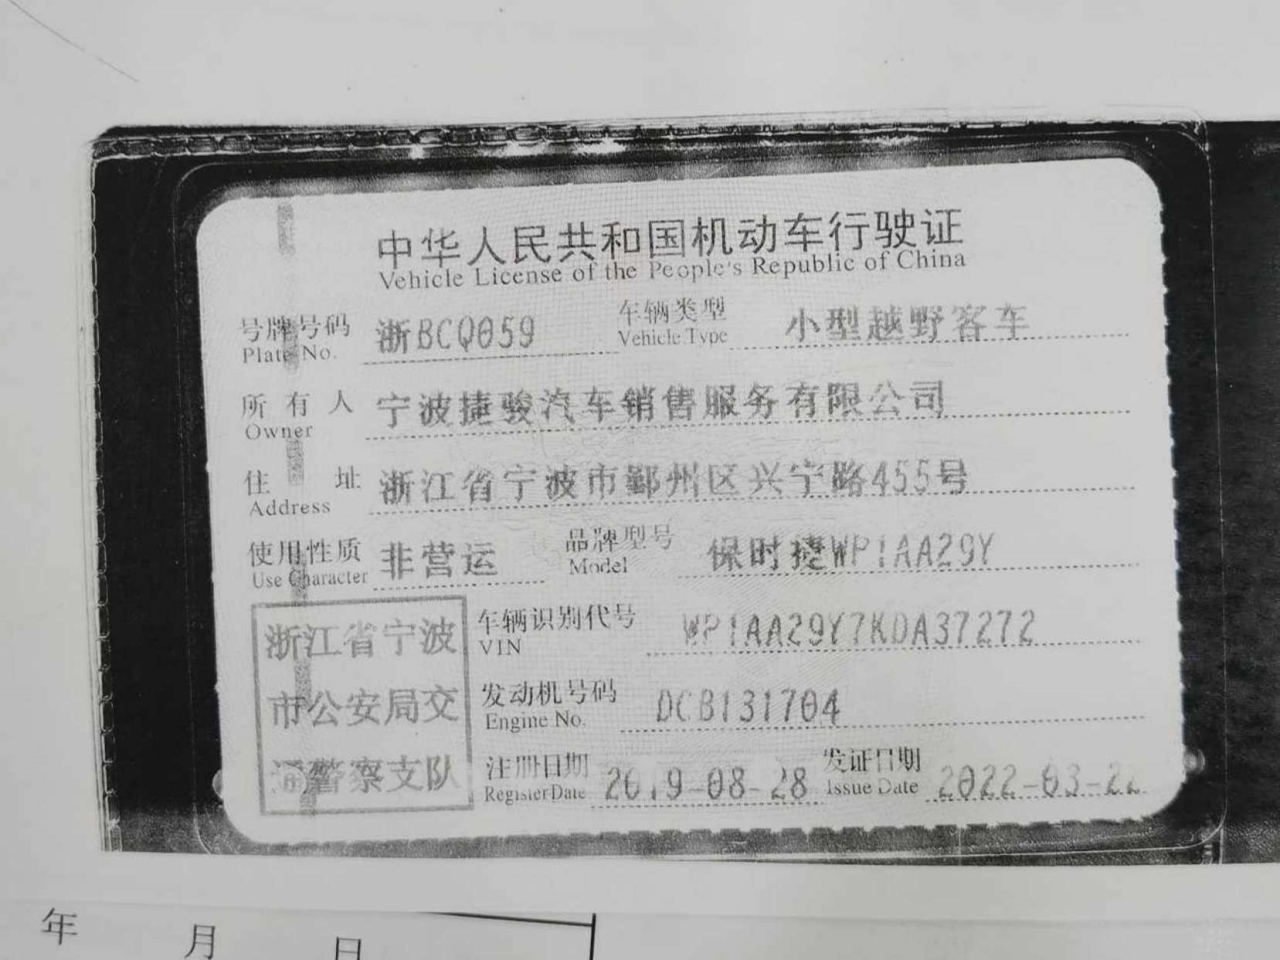 中华人民共和国机动车行驶证
Vehicle License of the People's Republic of China
号牌号码 浙BCQ059 车辆类型 小型越野客车
Plate No. Vehicle Type
所有人 宁波捷骏汽车销售服务有限公司
Owner
住址 浙江省宁波市鄞州区兴宁路455号
Address
使用性质 非营运 品牌型号 保时捷WP1AA29Y
Use Character Model
浙江省宁波 车辆识别代号 WP1AA29Y7KDA37272
VIN
市公安局交 发动机号码 DCB131704
Engine No.
通警察支队 注册日期 2019-08-28 发证日期 2022-03-22
Register Date Issue Date
年 月 日